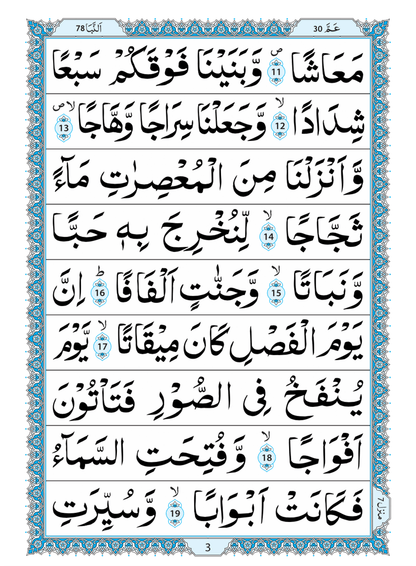 اَلنَّبَا 78
عَمَّ 30
مَعَاشًا ۪ۙ 11 وَّ بَنَيْنَا فَوْقَكُمْ سَبْعًا
شِدَادًا ۙ 12 وَّ جَعَلْنَا سِرَاجًا وَّهَّاجًا ۪ۙ 13
وَّ اَنْزَلْنَا مِنَ الْمُعْصِرٰتِ مَآءً
ثَجَّاجًا ۙ 14 لِّنُخْرِجَ بِهٖ حَبًّا
وَّ نَبَاتًا ۙ 15 وَّ جَنّٰتٍ اَلْفَافًا ؕ 16 اِنَّ
يَوْمَ الْفَصْلِ كَانَ مِيْقَاتًا ۙ 17 يَّوْمَ
يُنْفَخُ فِى الصُّوْرِ فَتَاْتُوْنَ
اَفْوَاجًا ۙ 18 وَّ فُتِحَتِ السَّمَآءُ
فَكَانَتْ اَبْوَابًا ۙ 19 وَّ سُيِّرَتِ
منزل 7
3